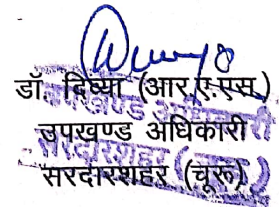 डॉ. दिव्या (आर.ए.एस.)
उपखण्ड अधिकारी
सरदारशहर (चूरू)